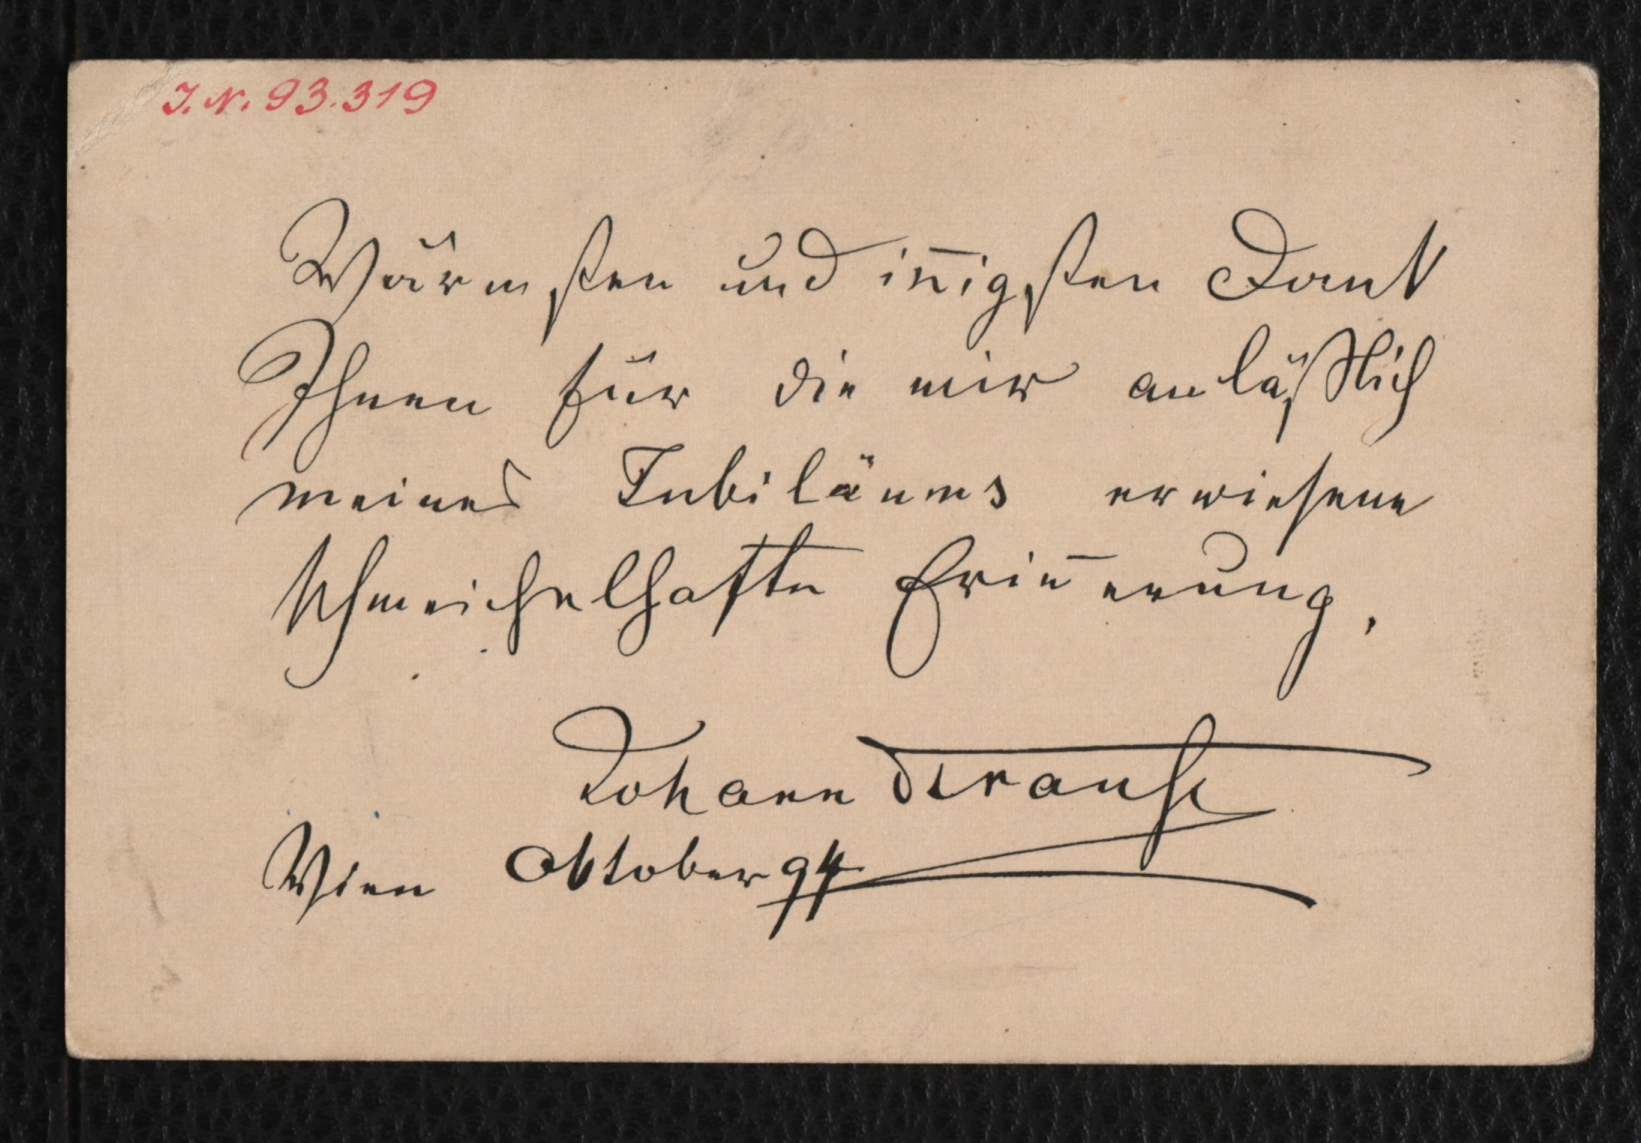 J.N. 93.319
Wärmsten und in̅igsten Dank
Ihnen für die mir anläßlich
meines Jubiläums erwiesene
schmeichelhafte Erin̅erung.
Johann Strauss
Wien Oktober 94